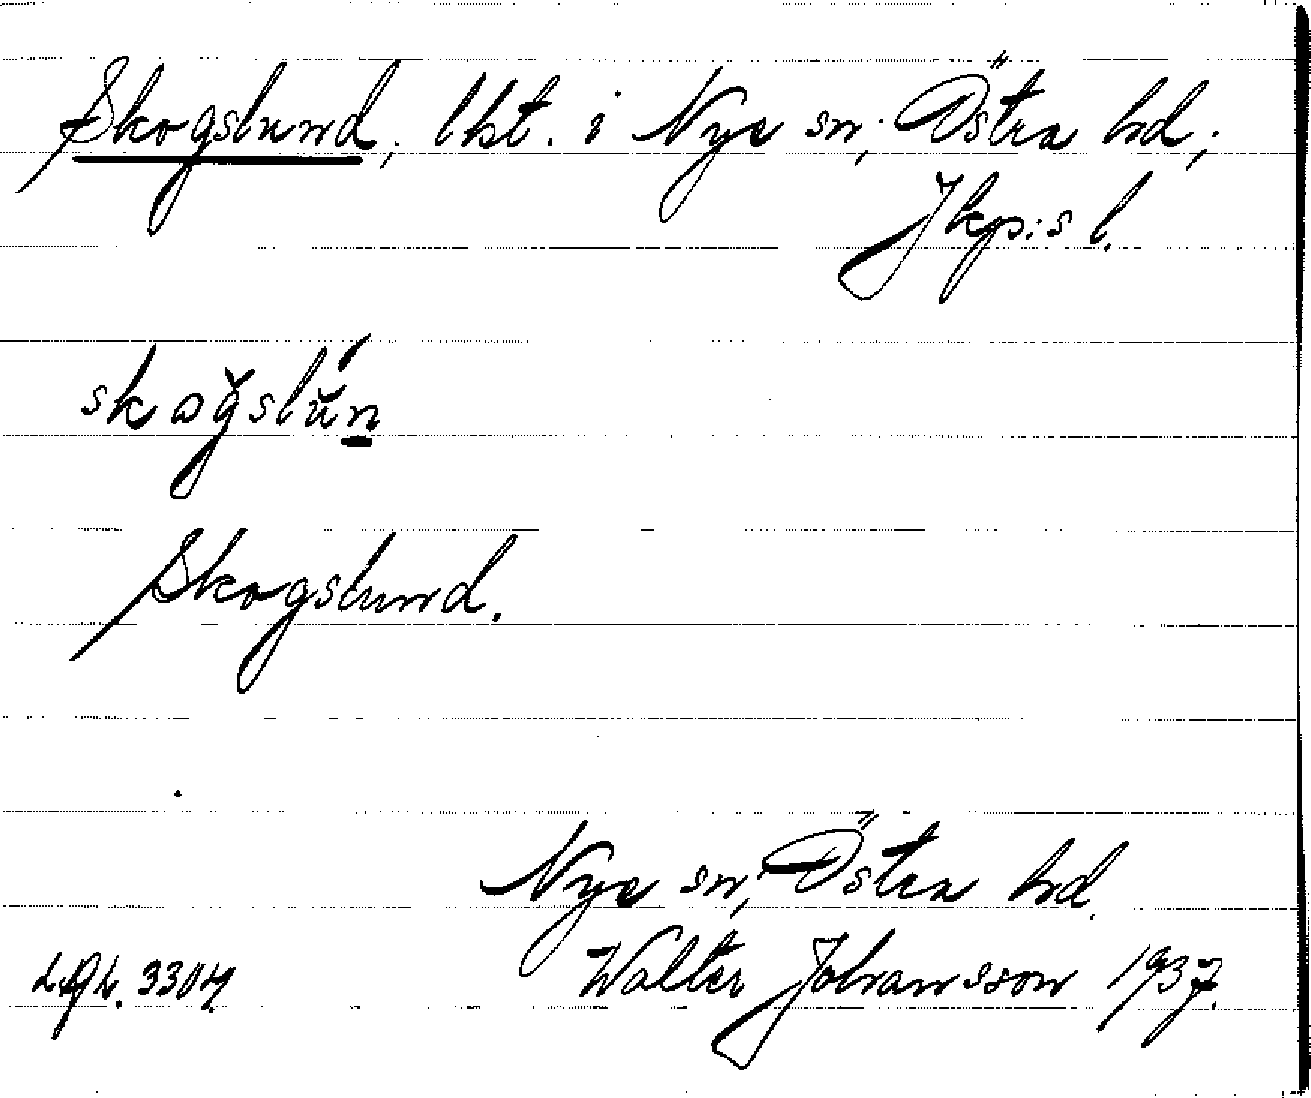 Skogslund, lht. i Nye sn, Östra hd,
Jkp:s l.
skoğslŭn
Skogslund.
Nye sn, Östra hd.
Walter Johansson 1937.